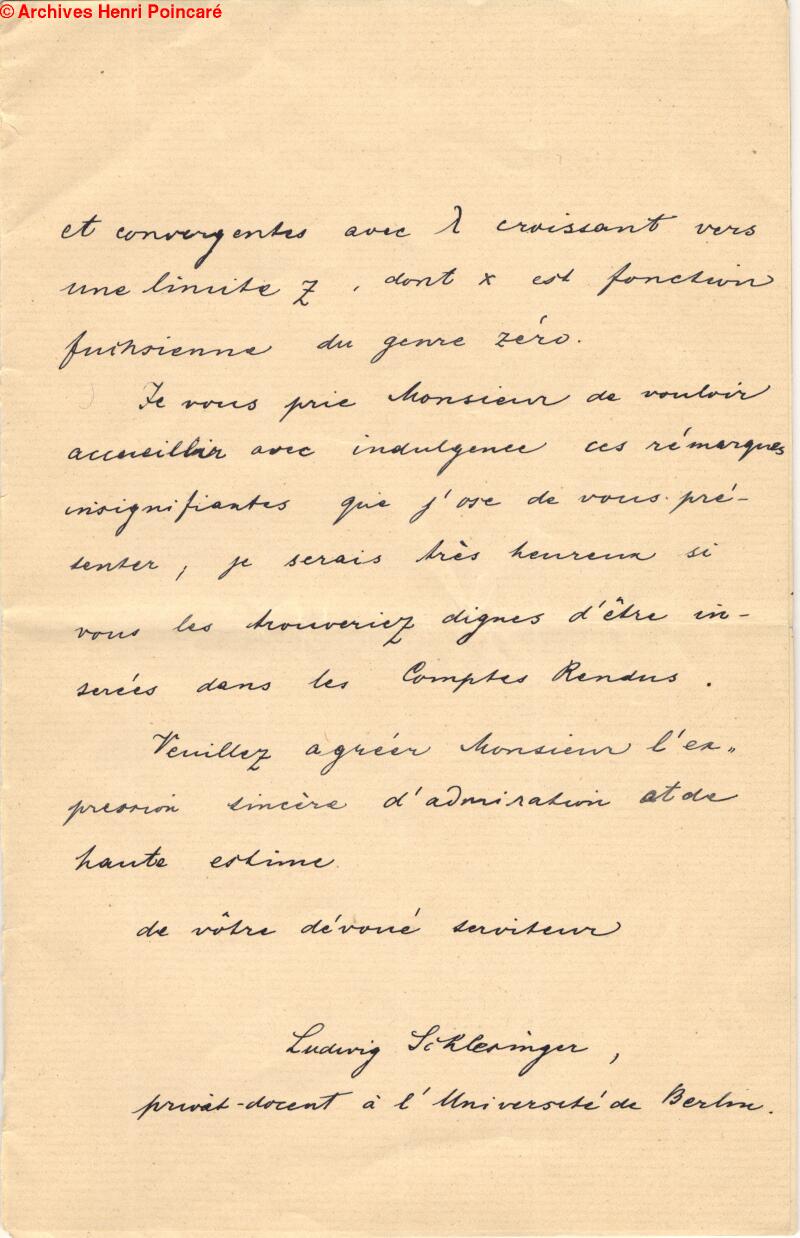 © Archives Henri Poincaré
et convergentes avec λ croissant vers
une limite z, dont x est fonction
fuchsienne du genre zéro.
Je vous prie Monsieur de vouloir
accueillir avec indulgence ces rémarques
insignifiantes que j'ose de vous pré-
senter, je serais très heureux si
vous les trouveriez dignes d'être in-
serées dans les Comptes Rendus.
Veuillez agréer Monsieur l'ex-
pression sincère d'admiration et de
haute estime
de vôtre dévoué serviteur
Ludwig Schlesinger,
privat-docent à l'Université de Berlin.